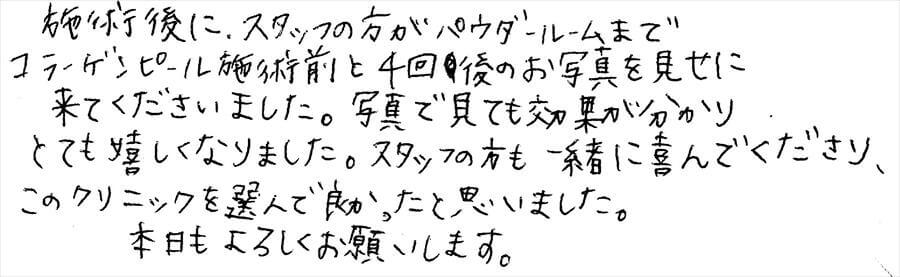 施術後に、スタッフの方がパウダールームまで
コラーゲンピール施術前と4回後のお写真を見せに
来てくださいました。写真で見ても効果が分かり
とても嬉しくなりました。スタッフの方も一緒に喜んでくださり、
このクリニックを選んで良かったと思いました。
本日もよろしくお願いします。